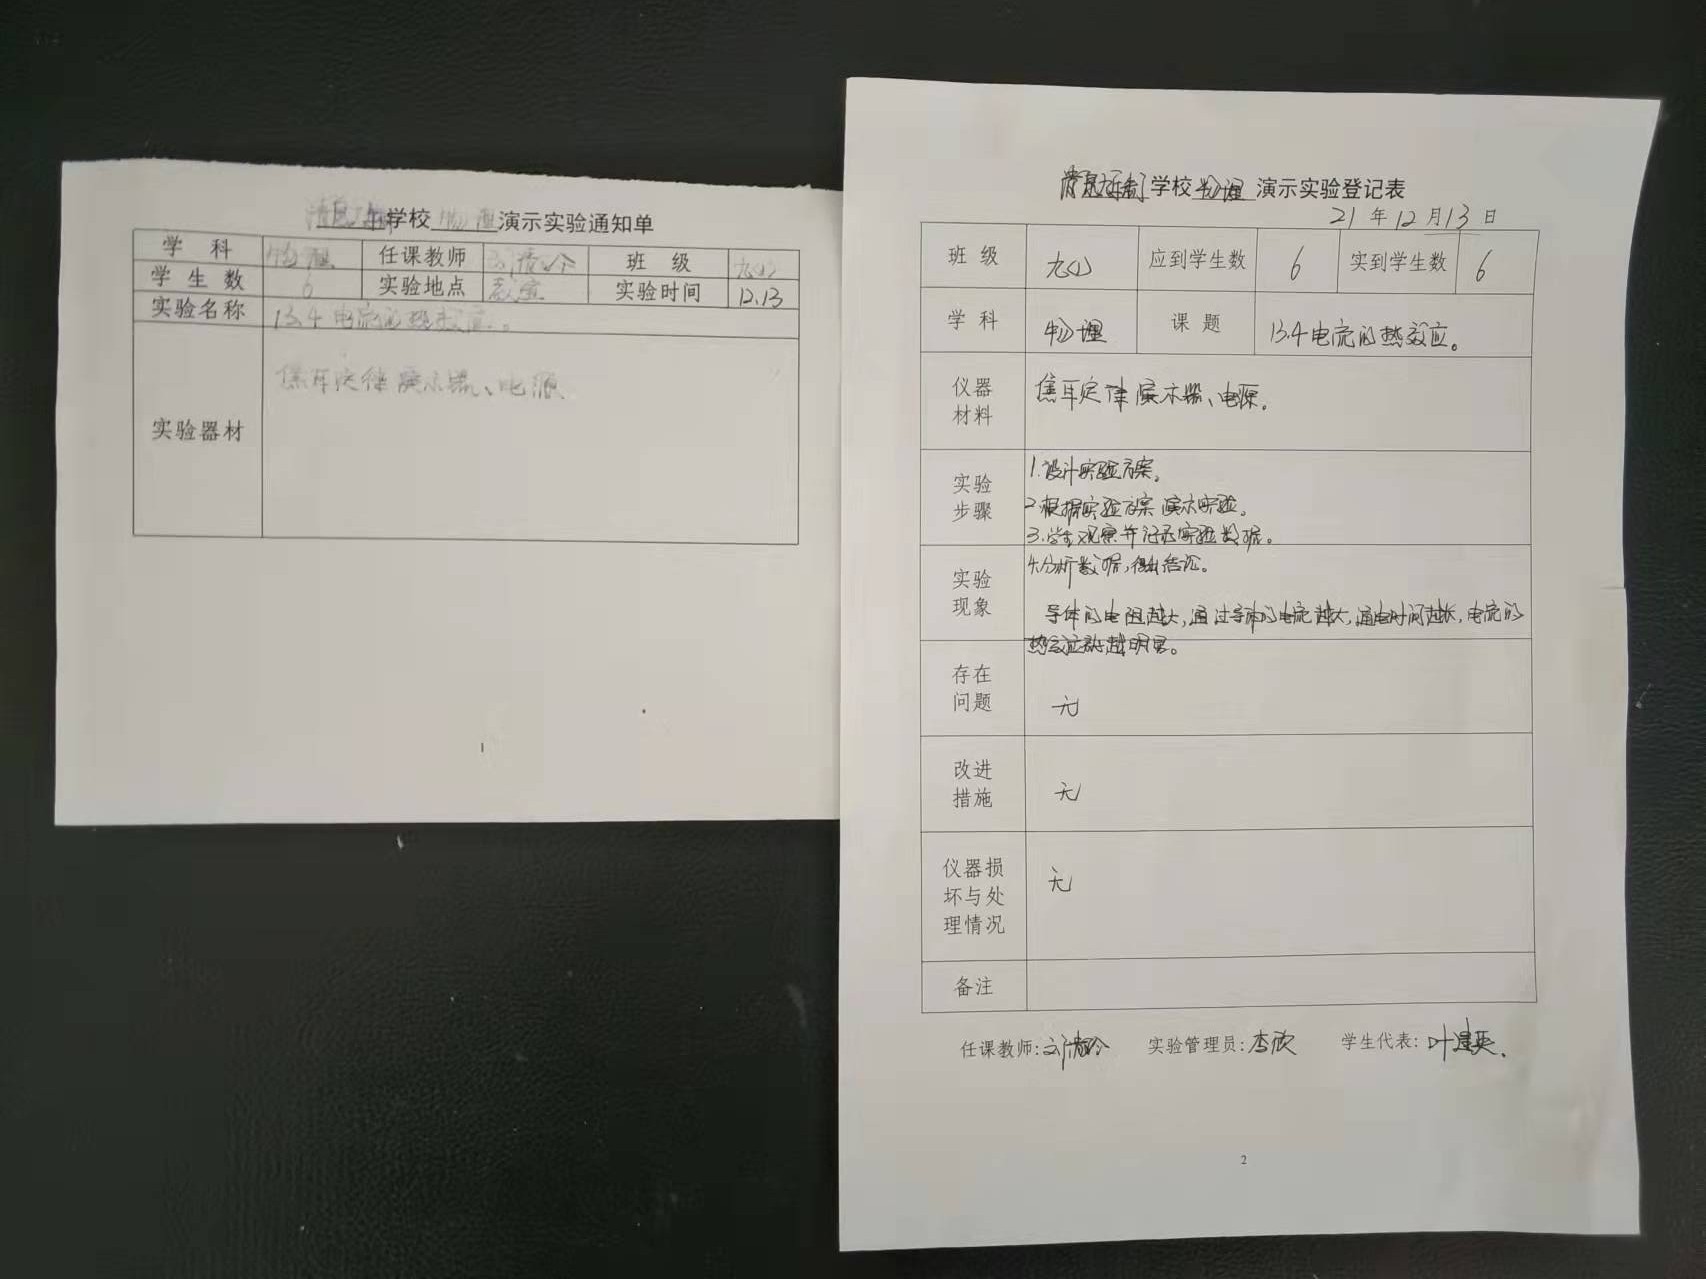 学校 物理 演示实验通知单
学 科 物理 任课教师 班 级 九(1)
学 生 数 6 实验地点 教室 实验时间 12.13
实验名称 13.4 电流的热效应。
实验器材 焦耳定律演示器、电源
1
学校 物理 演示实验登记表
21 年 12 月 13 日
班 级 九(1) 应到学生数 6 实到学生数 6
学 科 物理 课 题 13.4电流的热效应。
仪器
材料
焦耳定律演示器、电源。
实验
步骤
1.设计实验方案。
2.根据实验方案演示实验。
3.学生观察并记录实验数据。
4.分析数据,得出结论。
实验
现象
导体的电阻越大,通过导体的电流越大,通电时间越长,电流的
热效应就越明显。
存在
问题
无
改进
措施
无
仪器损
坏与处
理情况
无
备注
任课教师: 实验管理员:李欣 学生代表:
2